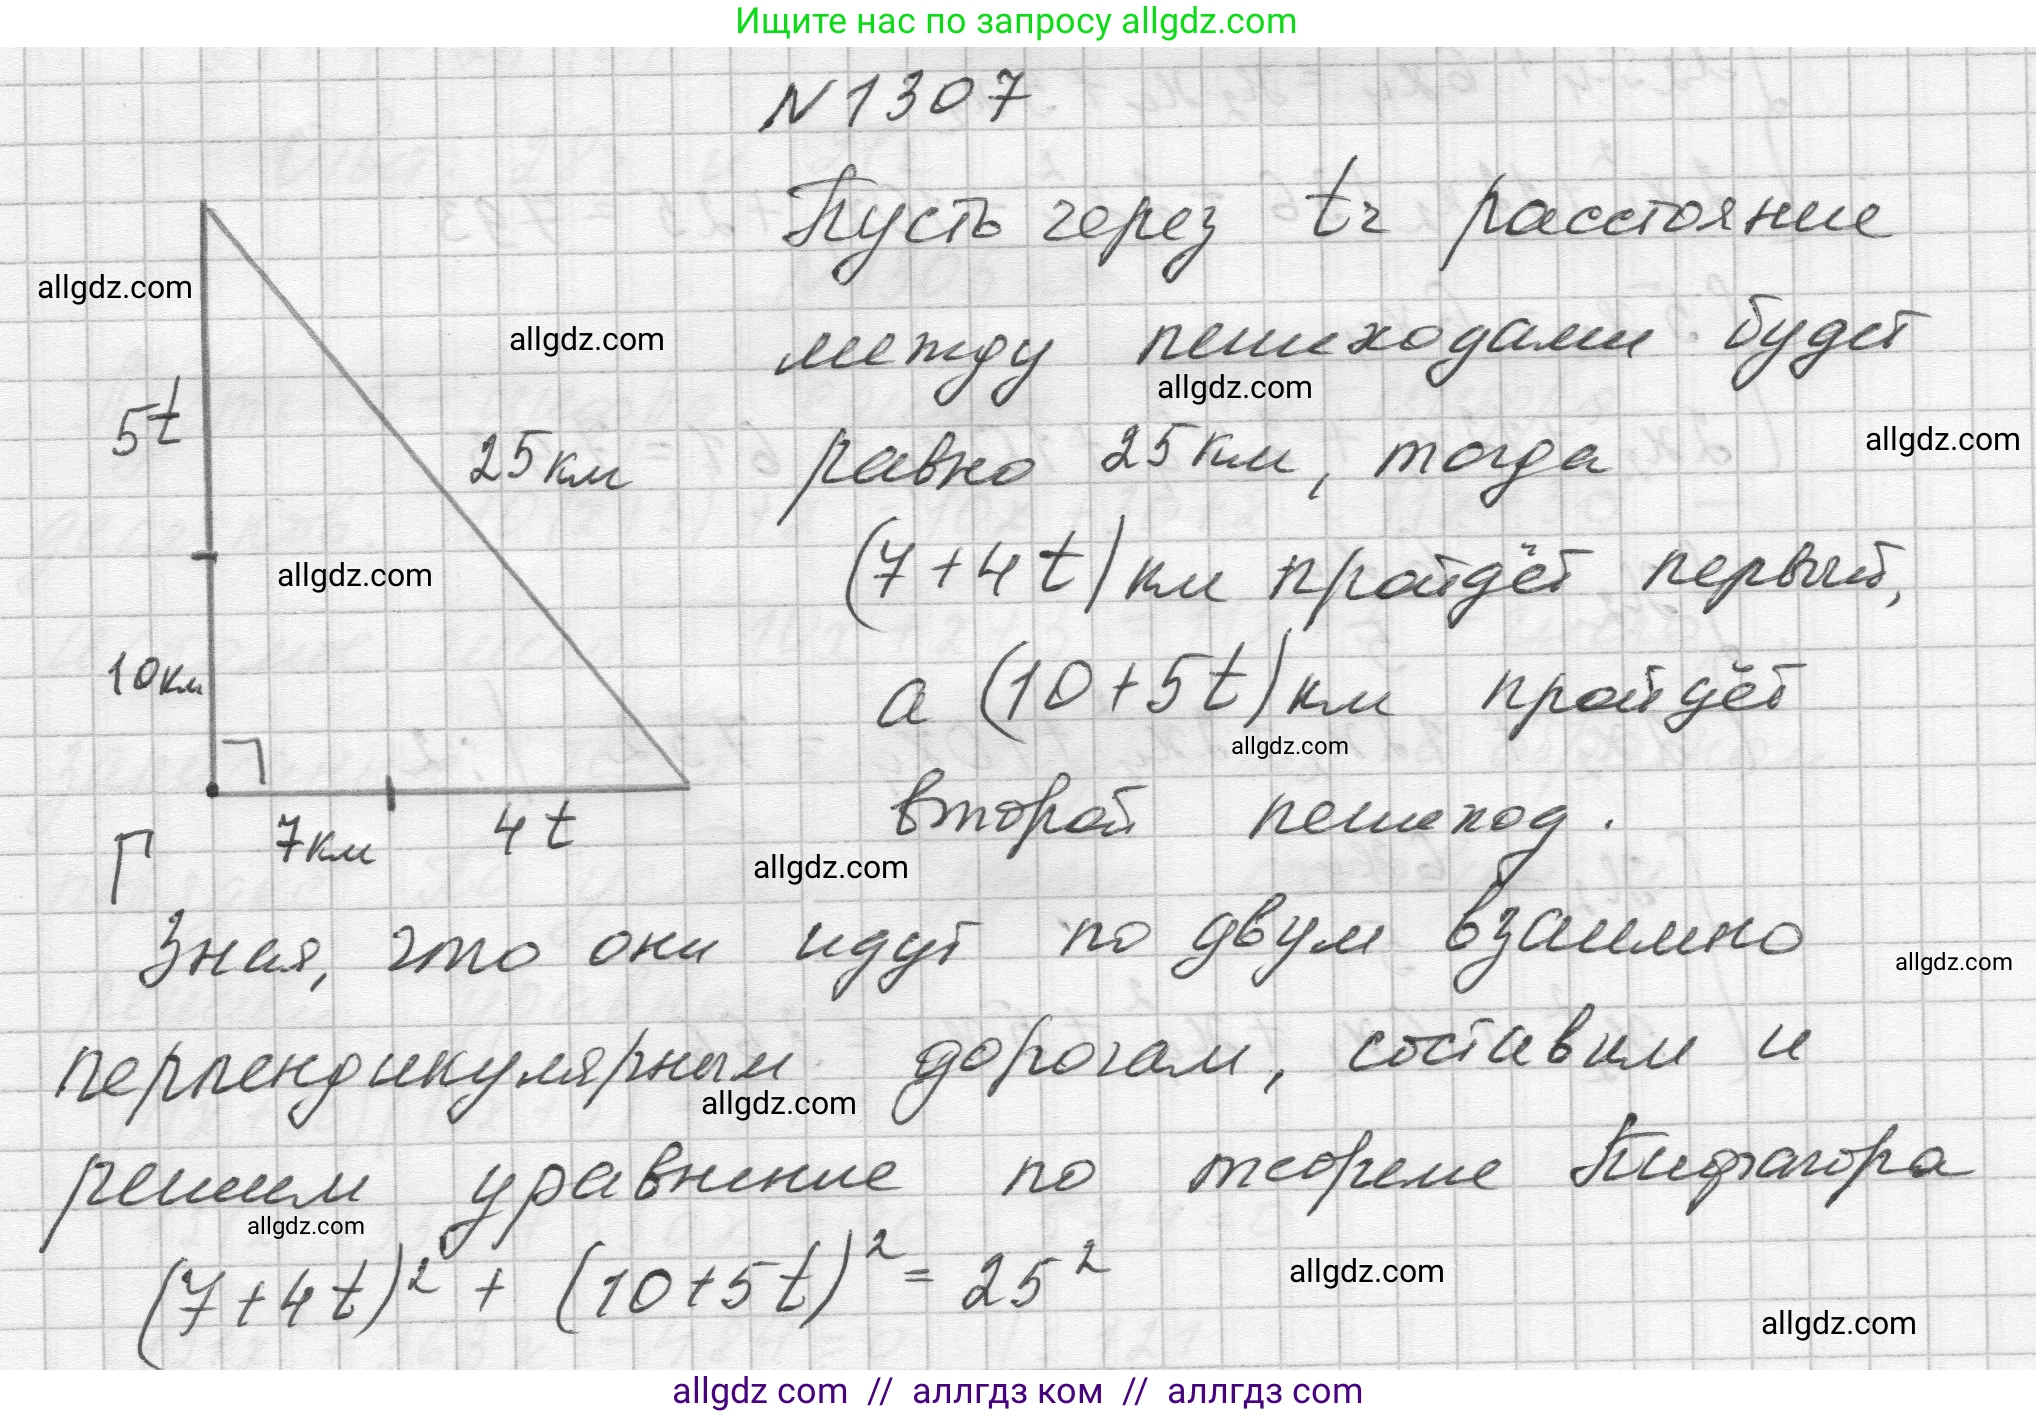 Ищите нас по запросу allgdz.com
N 1307
Пусть через t ч расстояние
между пешеходами будет
равно 25 км, тогда
(7 + 4t) км пройдёт первый,
а (10 + 5t) км пройдёт
второй пешеход.
5t
25 км
10 км
7 км
4t
Г
Зная, что они идут по двум взаимно
перпендикулярным дорогам, составим и
решим уравнение по теореме Пифагора
(7 + 4t)² + (10 + 5t)² = 25²
allgdz.com
allgdz.com
allgdz.com
allgdz.com
allgdz.com
allgdz.com
allgdz.com
allgdz.com
allgdz.com
allgdz.com
allgdz.com
allgdz.com
allgdz com // аллгдз ком // аллгдз com